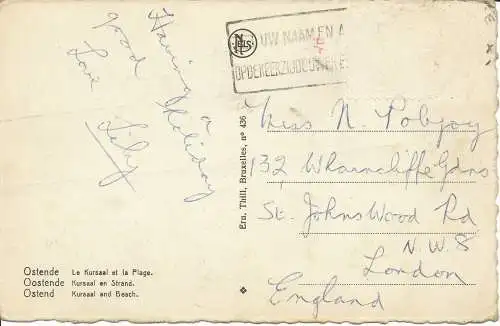 Having a
good holiday
Love
Lily
NELS
UW NAAM EN A
OP DE KEERZIJDE UWER
Ern. Thill, Bruxelles, n° 436
Miss N Pobjoy
132 Wharncliffe Gdns
St. Johns Wood Rd
N.W.8
London
England
Ostende Le Kursaal et la Plage.
Oostende Kursaal en Strand.
Ostend Kursaal and Beach.